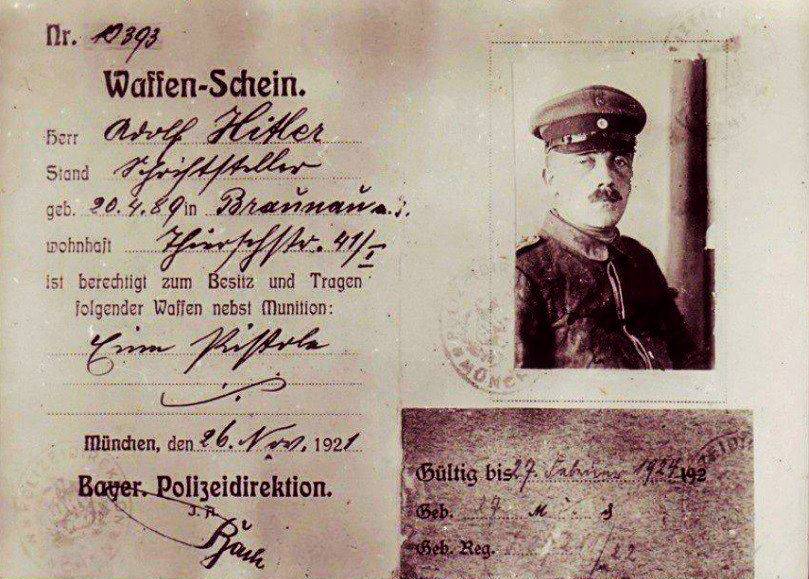 Nr. 10393
Waffen-Schein.
Herr Adolf Hitler
Stand Schriftsteller
geb. 20.4.89 in Braunau a. I.
wohnhaft Thierschstr. 41/I
ist berechtigt zum Besitz und Tragen
folgender Waffen nebst Munition:
Eine Pistole
München, den 26. Nov. 1921
Bayer. Polizeidirektion.
J. A.
MÜNCHEN
Gültig bis 27. Februar 192
Geb. M
Geb. Reg. 22